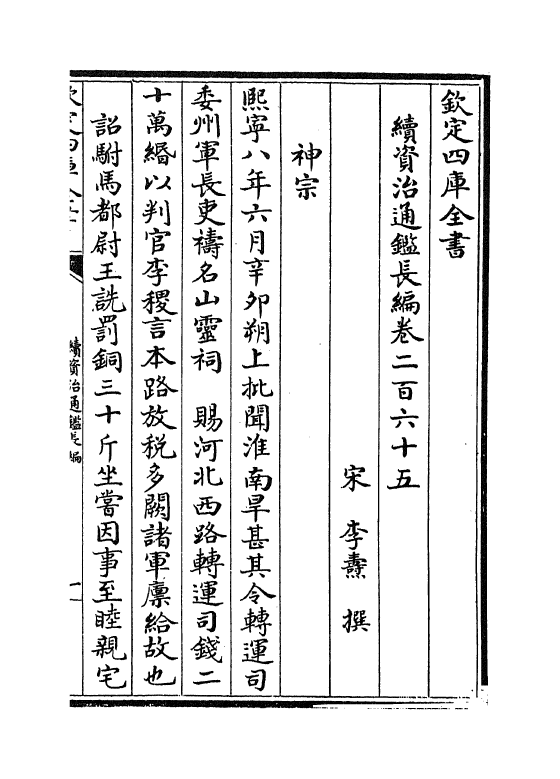 欽定四庫全書
續資治通鑑長編卷二百六十五
宋 李燾 撰
神宗
熙寧八年六月辛卯朔上批聞淮南旱甚其令轉運司
委州軍長吏禱名山靈祠 賜河北西路轉運司錢二
十萬緡以判官李稷言本路放稅多闕諸軍廪給故也
詔駙馬都尉王詵罰銅三十斤坐嘗因事至睦親宅
欽定四庫全書
續資治通鑑長編
一